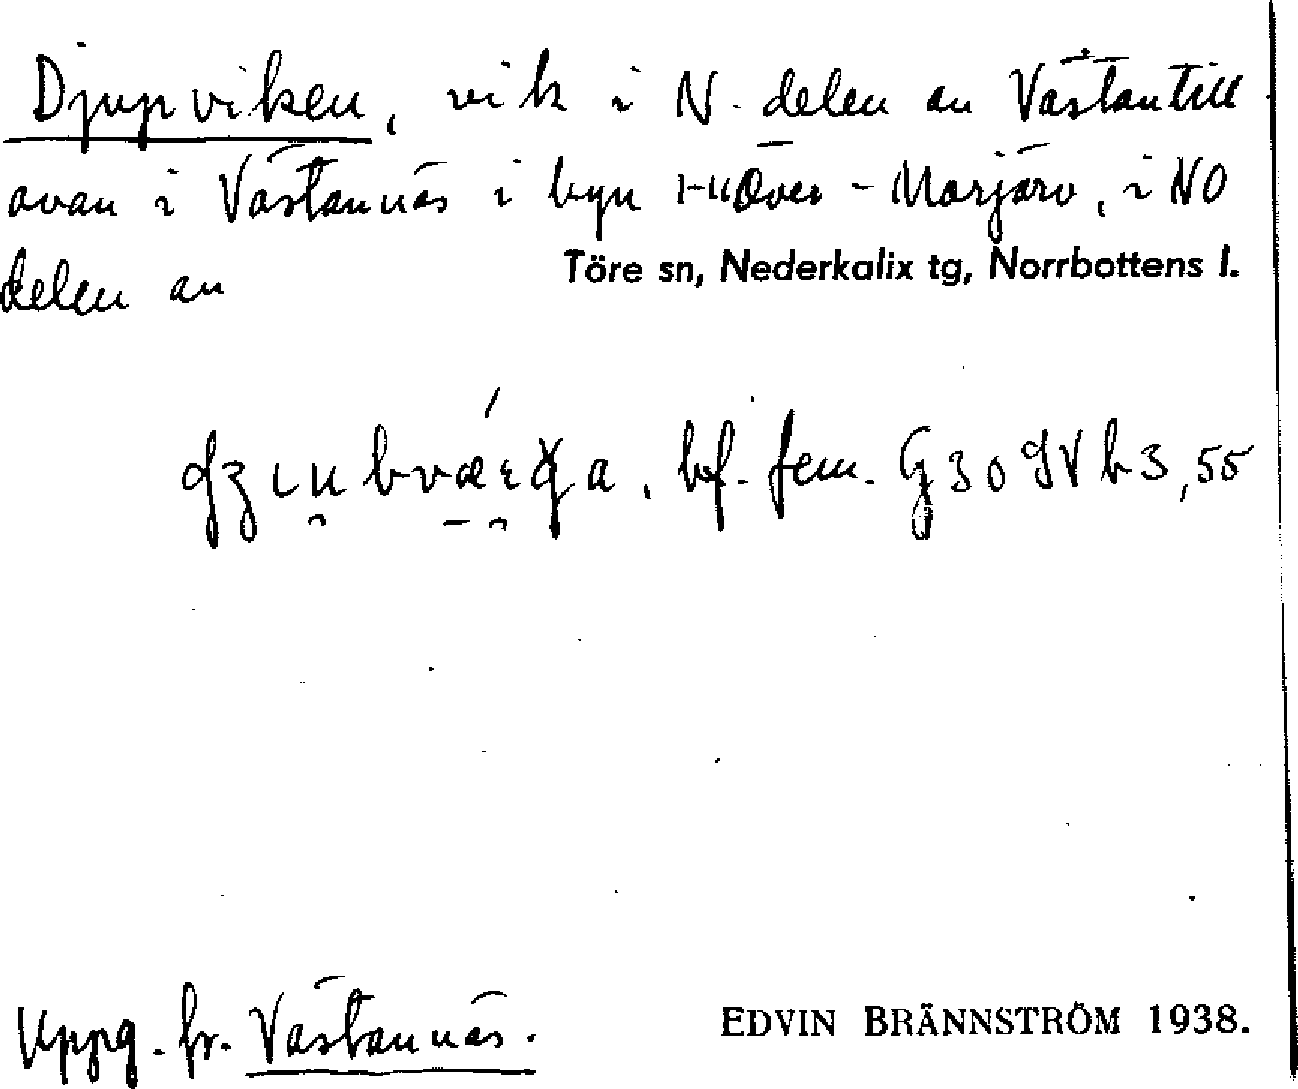 Djupviken, vik i N. delen av Västantill
avan i Västannäs i byn Över-Morjärv, i NO
delen av
Töre sn, Nederkalix tg, Norrbottens l.
bf. fem. G 30 g V h 3,55
Uppg. fr. Västannäs.
EDVIN BRÄNNSTRÖM 1938.